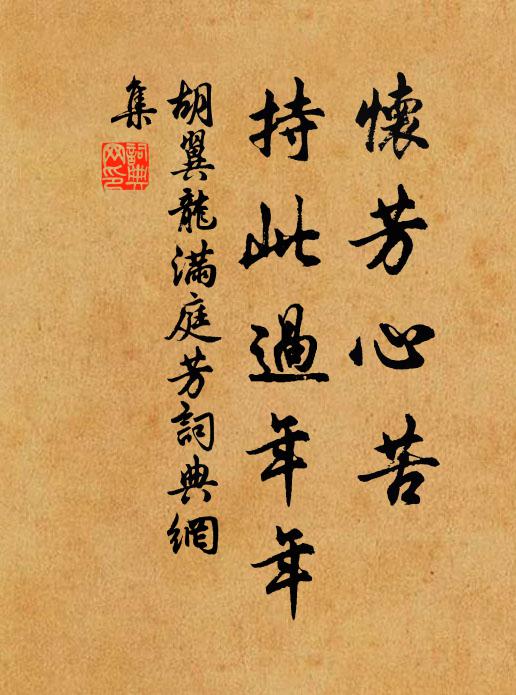 懷芳心苦
持此過年年
胡翼龍滿庭芳詞典網
集
詞典網印